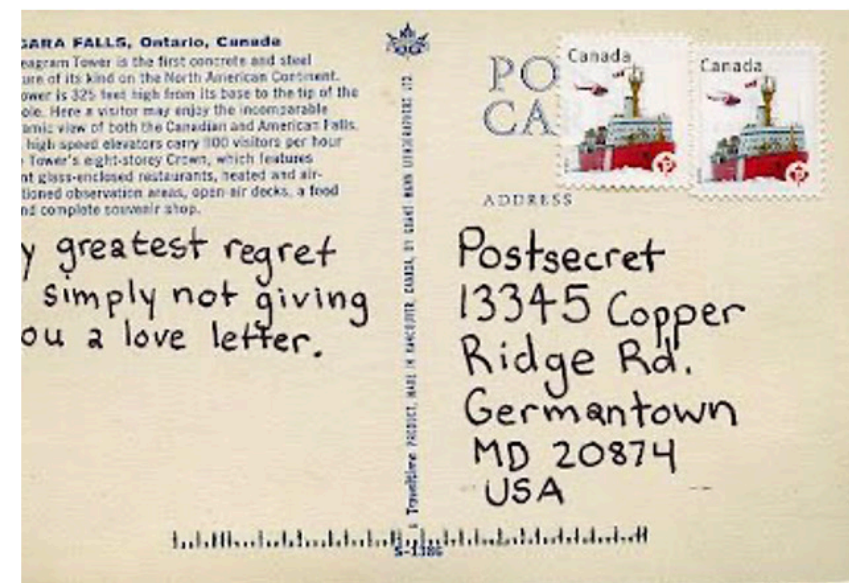 GARA FALLS, Ontario, Canada
eagram Tower is the first concrete and steel
ure of its kind on the North American Continent.
ower is 325 feet high from its base to the tip of the
ole. Here a visitor may enjoy the incomparable
amic view of both the Canadian and American Falls.
high speed elevators carry 900 visitors per hour
Tower's eight-storey Crown, which features
nt glass-enclosed restaurants, heated and air-
tioned observation areas, open-air decks, a food
nd complete souvenir shop.
y greatest regret
simply not giving
ou a love letter.
Traveltime PRODUCT, MADE IN VANCOUVER, CANADA, BY GRANT MANN LITHOGRAPHERS LTD.
S-1386
PO
CA
Canada
P
Canada
P
ADDRESS
Postsecret
13345 Copper
Ridge Rd.
Germantown
MD 20874
USA